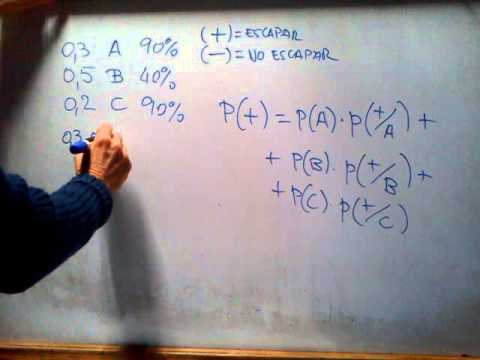 0,3 A 90%
0,5 B 40%
0,2 C 90%
0,3
(+) = ESCAPAR
(-) = NO ESCAPAR
P(+) = P(A) · P(+/A) +
+ P(B) · P(+/B) +
+ P(C) · P(+/C)